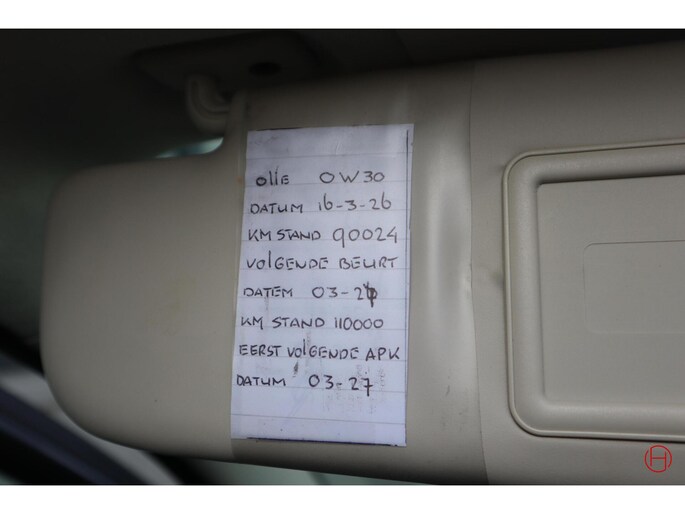 olie 0W30
DATUM 16-3-26
KM STAND 90024
VOLGENDE BEURT
DATEM 03-27
KM STAND 110000
EERST VOLGENDE APK
DATUM 03-27